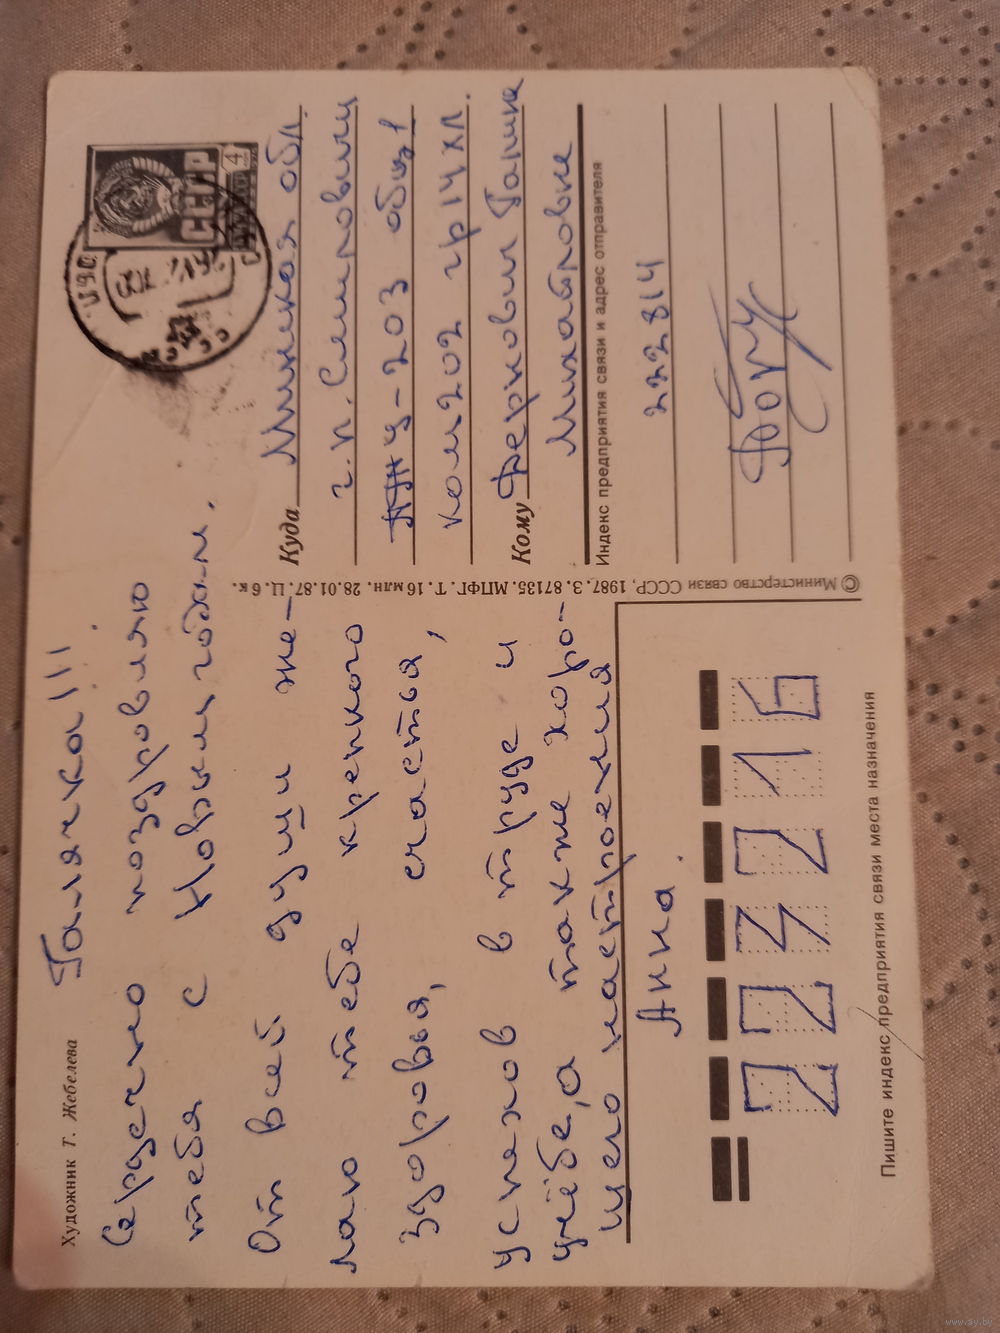 Художник Т. Жебелева
Галячка!!!
Сердечно поздровляю
тебя с Новрым годам.
От всей души же-
лаю тебе крепкого
здоровья, счастья,
успехов в труде и
учёбе, а также хоро-
шего настроения
Анна.
222
16
Пишите индекс предприятия связи места назначения
© Министерство связи СССР, 1987. З. 87135. МПФГ. Т. 16 млн. 28.01.87. Ц. 6 к.
СССР
4
Куда Минская обл.
г.п. Смиловичи
203 общ 1
ком 202 гр 14 хл.
Кому Галине
Михайловне
Индекс предприятия связи и адрес отправителя
222814
www.ay.by